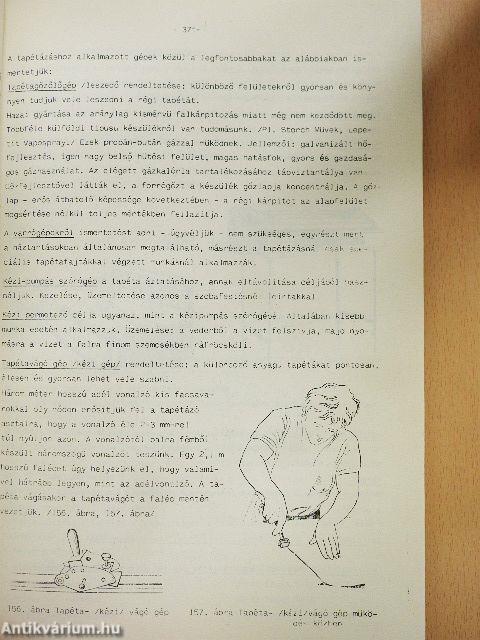 - 37 -
A tapétázáshoz alkalmazott gépek közül a legfontosabbakat az alábbiakban is-
mertetjük:
Tapétagőzölőgép /leszedő rendeltetése: különböző felületekről gyorsan és köny-
nyen tudjuk vele leszedni a régi tapétát.
Hazai gyártása az aránylag kismérvű falkárpitozás miatt még nem kezdődött meg.
Többféle külföldi tipusu készülékről van tudomásunk. /Pl. Storch Müvek,
Vapospray./ Ezek propán-bután gázzal müködnek. Jellemzői: galvanizált hő-
fejlesztés, igen nagy belső hütési felület, magas hatásfok, gyors és gazdasá-
gos gázhasználat. Az elégett gázkalória tartalékozásához tápviztartálya van
gőzfejlesztővel látták el, a forrógőzt a készülék gőzlapja koncentrálja. A gőz-
lap - erős átható képessége következtében - a régi kárpitot az alapfelület
megsértése nélkül teljes mértékben fellazitja.
A varrógépekről ismertetést adni - úgy véljük - nem szükséges, egyrészt mert
a háztartásokban általánosan megtalálható, másrészt a tapétázásnál csak spe-
ciális tapétafajtákkal végzett munkáknál alkalmazzák.
Kézi-pumpás szórógép a tapéta áztatásához, annak eltávolitása céljából hasz-
náljuk. Kezelése, üzemeltetése azonos a szobafestésnél leirtakkal.
Kézi permetező célja ugyanaz, mint a kézipumpás szórógépé. Általában kisebb
munka esetén alkalmazzuk. Üzemelése: a vederből a vizet felszivja, majd nyo-
másra a vizet a falra finom szemcsékben ráfröcsköli.
Tapétavágó gép /kézi gép/ rendeltetése: a különböző anyagu tapétákat pontosan,
élesen és gyorsan lehet vele szabni.
Három méter hosszú acél vonalzó kis facsava-
rokkal oly módon erősitjük fel a tapétázó
asztalra, hogy a vonalzó éle 2-3 mm-rel
túl nyúljon azon. A vonalzótól balra fémből
készült háromszögü vonalzót teszünk. Egy 2, m
hosszú falécet úgy helyezünk el, hogy valami-
vel hátrább legyen, mint az acélvonalzó. A ta-
péta vágásakor a tapétavágót a faléc mentén
vezetjük. /156. ábra, 157. ábra/
156. ábra Tapéta- /kézi/ vágó gép
157. ábra Tapéta- /kézi/vágó gép mükö-
dés közben
Antikvárium.hu